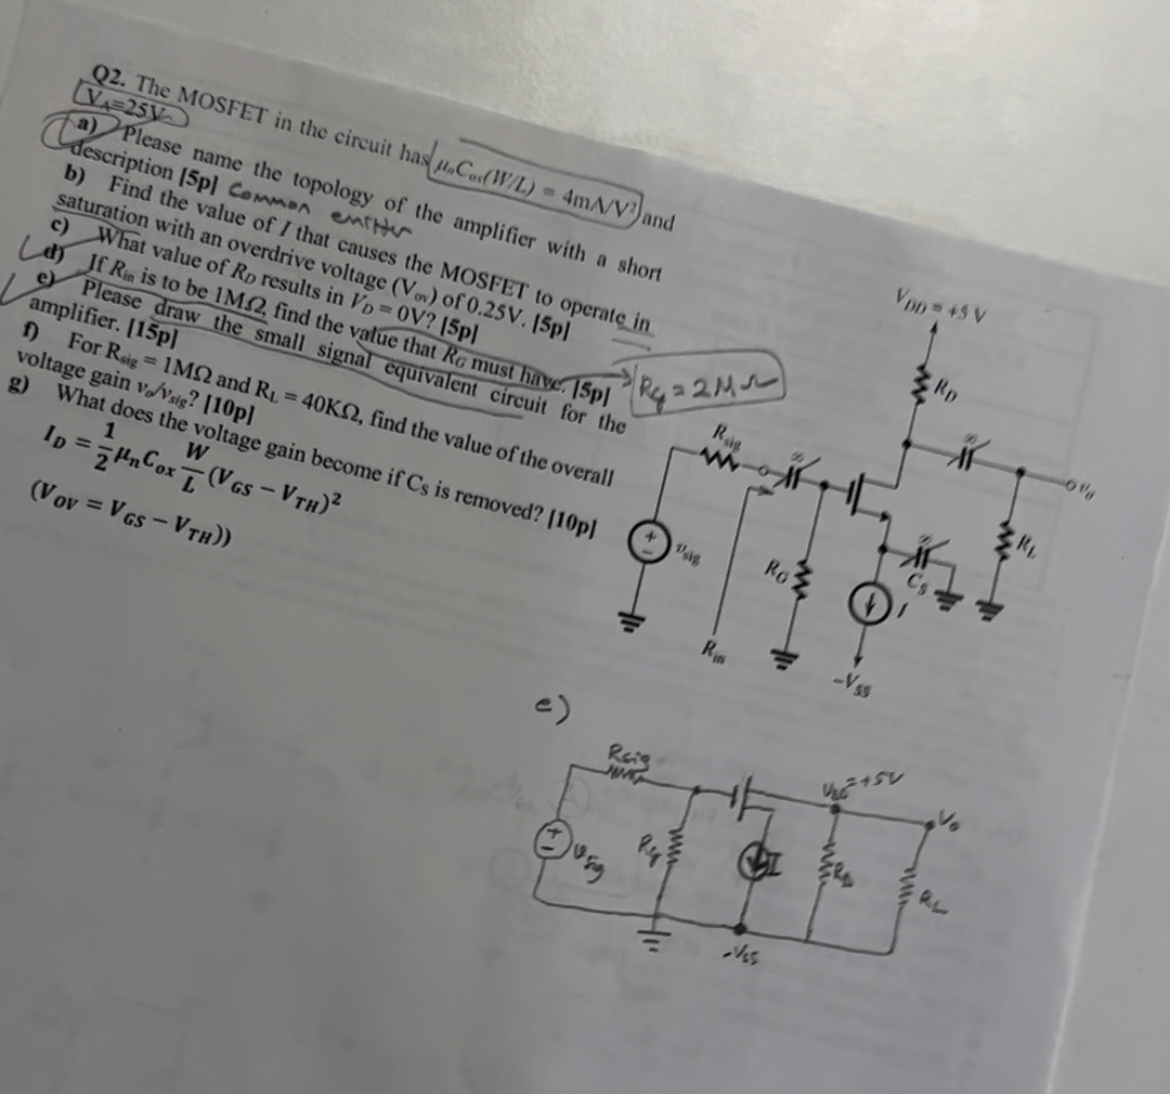 Q2. The MOSFET in the circuit has μnCox(W/L) = 4mA/V² and
VA=25V
a) Please name the topology of the amplifier with a short
description [5p] Common emitter
b) Find the value of I that causes the MOSFET to operate in
saturation with an overdrive voltage (Vov) of 0.25V. [5p]
c) What value of RD results in VD = 0V? [5p]
d) If Rin is to be 1MΩ, find the value that RG must have. [5p]
e) Please draw the small signal equivalent circuit for the
amplifier. [15p]
f) For Rsig = 1MΩ and RL = 40KΩ, find the value of the overall
voltage gain vo/vsig? [10p]
g) What does the voltage gain become if CS is removed? [10p]
ID = 1/2 μnCox W/L (VGS − VTH)²
(VOV = VGS − VTH))
RG = 2MΩ
VDD = +5 V
RD
Rsig
∞
∞
vo
vsig
RG
∞
CS
RL
I
Rin
-VSS
e)
Rsig
+5V
Vo
Vsig
RG
I
RD
RL
-VSS